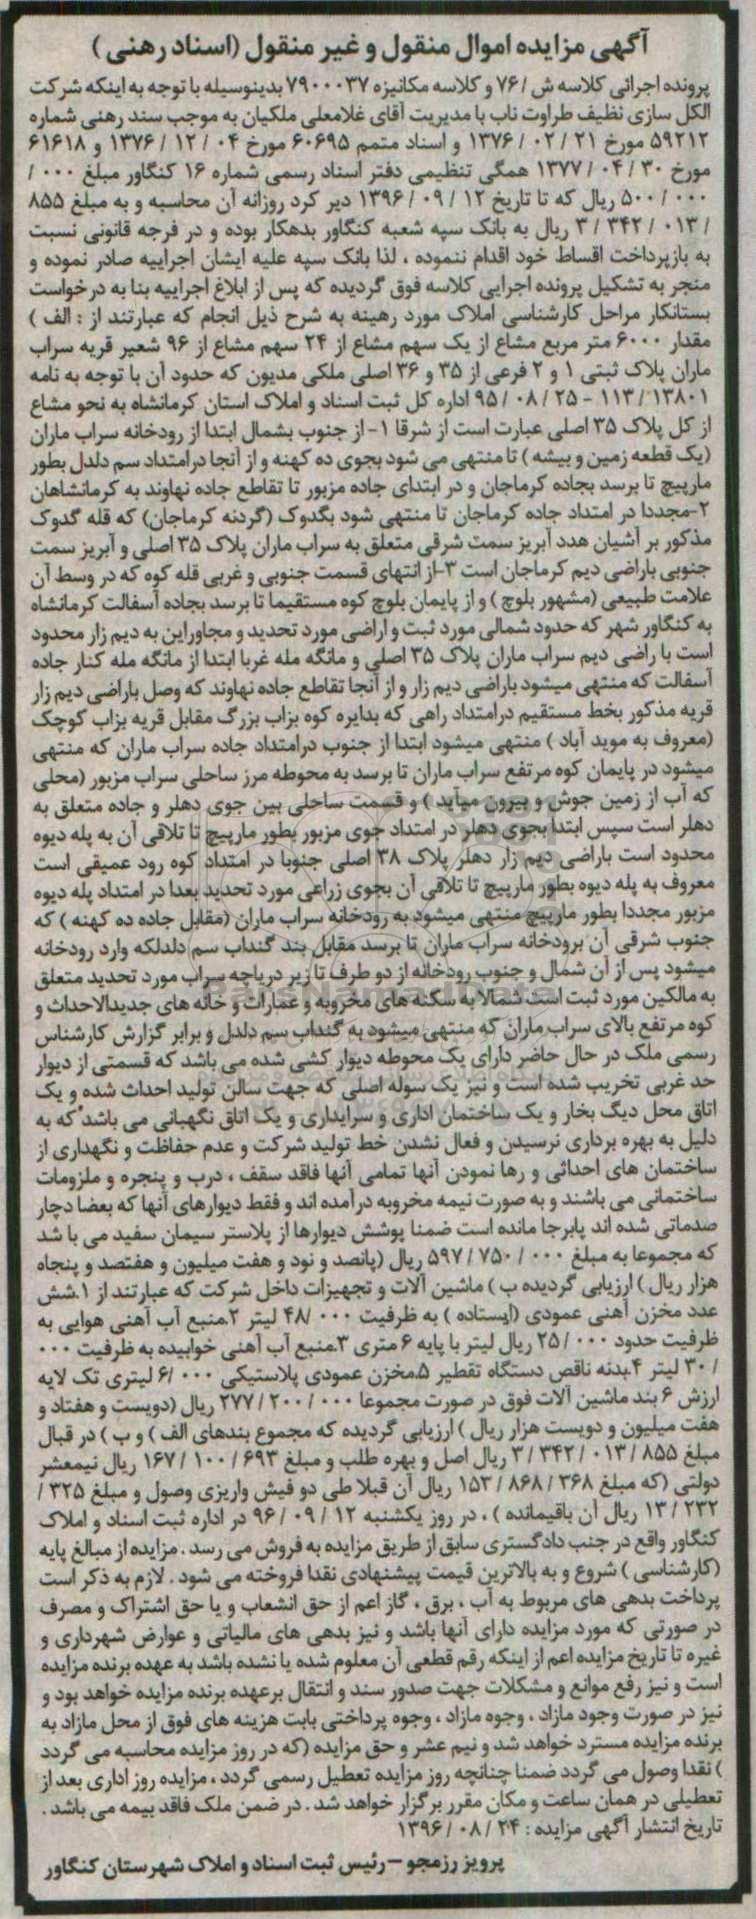 آگهی مزایده اموال منقول و غیر منقول (اسناد رهنی)
پرونده اجرائی کلاسه ش /۷۶ و کلاسه مکانیزه ۷۹۰۰۰۳۷ بدینوسیله با توجه به اینکه شرکت
الکل سازی نظیف طراوت ناب با مدیریت آقای غلامعلی ملکیان به موجب سند رهنی شماره
۵۹۲۱۲ مورخ ۲۱ / ۰۲ / ۱۳۷۶ و اسناد متمم ۶۰۶۹۵ مورخ ۰۴ / ۱۲ / ۱۳۷۶ و ۶۱۶۱۸
مورخ ۳۰ / ۰۴ / ۱۳۷۷ همگی تنظیمی دفتر اسناد رسمی شماره ۱۶ کنگاور مبلغ ۰۰۰ /
۰۰۰ / ۵۰۰ ریال که تا تاریخ ۱۲ / ۰۹ / ۱۳۹۶ دیر کرد روزانه آن محاسبه و به مبلغ ۸۵۵
/ ۰۱۳ / ۳۴۲ / ۳ ریال به بانک سپه شعبه کنگاور بدهکار بوده و در فرجه قانونی نسبت
به بازپرداخت اقساط خود اقدام ننموده ، لذا بانک سپه علیه ایشان اجراییه صادر نموده و
منجر به تشکیل پرونده اجرایی کلاسه فوق گردیده که پس از ابلاغ اجراییه بنا به درخواست
بستانکار مراحل کارشناسی املاک مورد رهینه به شرح ذیل انجام که عبارتند از : الف )
مقدار ۶۰۰۰ متر مربع مشاع از یک سهم مشاع از ۲۴ سهم مشاع از ۹۶ شعیر قریه سراب
ماران پلاک ثبتی ۱ و ۲ فرعی از ۳۵ و ۳۶ اصلی ملکی مدیون که حدود آن با توجه به نامه
۱۳۸۰۱ / ۱۱۳ - ۲۵ / ۰۸ / ۹۵ اداره کل ثبت اسناد و املاک استان کرمانشاه به نحو مشاع
از کل پلاک ۳۵ اصلی عبارت است از شرقا ۱- از جنوب بشمال ابتدا از رودخانه سراب ماران
(یک قطعه زمین و بیشه ) تا منتهی می شود بجوی ده کهنه و از آنجا درامتداد سم دلدل بطور
مارپیچ تا برسد بجاده کرماجان و در ابتدای جاده مزبور تا تقاطع جاده نهاوند به کرمانشاهان
۲-مجددا در امتداد جاده کرماجان تا منتهی شود بگدوک (گردنه کرماجان) که قله گدوک
مذکور بر آشیان هدد آبریز سمت شرقی متعلق به سراب ماران پلاک ۳۵ اصلی و آبریز سمت
جنوبی باراضی دیم کرماجان است ۳-از انتهای قسمت جنوبی و غربی قله کوه که در وسط آن
علامت طبیعی (مشهور بلوچ ) و از پایمان بلوچ کوه مستقیما تا برسد بجاده آسفالت کرمانشاه
به کنگاور شهر که حدود شمالی مورد ثبت و اراضی مورد تحدید و مجاوراین به دیم زار محدود
است با راضی دیم سراب ماران پلاک ۳۵ اصلی و مانگه مله غربا ابتدا از مانگه مله کنار جاده
آسفالت که منتهی میشود باراضی دیم زار و از آنجا تقاطع جاده نهاوند که وصل باراضی دیم زار
قریه مذکور بخط مستقیم درامتداد راهی که بدایره کوه بزاب بزرگ مقابل قریه بزاب کوچک
(معروف به موید آباد ) منتهی میشود ابتدا از جنوب درامتداد جاده سراب ماران که منتهی
میشود در پایمان کوه مرتفع سراب ماران تا برسد به محوطه مرز ساحلی سراب مزبور (محلی
که آب از زمین جوش و بیرون میآید ) و قسمت ساحلی بین جوی دهلر و جاده متعلق به
دهلر است سپس ابتدا بجوی دهلر در امتداد جوی مزبور بطور مارپیچ تا تلاقی آن به پله دیوه
محدود است باراضی دیم زار دهلر پلاک ۳۸ اصلی جنوبا در امتداد کوه رود عمیقی است
معروف به پله دیوه بطور مارپیچ تا تلاقی آن بجوی زراعی مورد تحدید بعدا در امتداد پله دیوه
مزبور مجددا بطور مارپیچ منتهی میشود به رودخانه سراب ماران (مقابل جاده ده کهنه ) که
جنوب شرقی آن برودخانه سراب ماران تا برسد مقابل بند گنداب سم دلدلکه وارد رودخانه
میشود پس از آن شمال و جنوب رودخانه از دو طرف تا زیر دریاچه سراب مورد تحدید متعلق
به مالکین مورد ثبت است شمالا به سکنه های مخروبه و عمارات و خانه های جدیدالاحداث و
کوه مرتفع بالای سراب ماران که منتهی میشود به گنداب سم دلدل و برابر گزارش کارشناس
رسمی ملک در حال حاضر دارای یک محوطه دیوار کشی شده می باشد که قسمتی از دیوار
حد غربی تخریب شده است و نیز یک سوله اصلی که جهت سالن تولید احداث شده و یک
اتاق محل دیگ بخار و یک ساختمان اداری و سرایداری و یک اتاق نگهبانی می باشد که به
دلیل به بهره برداری نرسیدن و فعال نشدن خط تولید شرکت و عدم حفاظت و نگهداری از
ساختمان های احداثی و رها نمودن آنها تمامی آنها فاقد سقف ، درب و پنجره و ملزومات
ساختمانی می باشند و به صورت نیمه مخروبه درآمده اند و فقط دیوارهای آنها که بعضا دچار
صدماتی شده اند پابرجا مانده است ضمنا پوشش دیوارها از پلاستر سیمان سفید می با شد
که مجموعا به مبلغ ۰۰۰ / ۷۵۰ / ۵۹۷ ریال (پانصد و نود و هفت میلیون و هفتصد و پنجاه
هزار ریال ) ارزیابی گردیده ب ) ماشین آلات و تجهیزات داخل شرکت که عبارتند از ۱.شش
عدد مخزن آهنی عمودی (ایستاده ) به ظرفیت ۰۰۰ /۴۸ لیتر ۲.منبع آب آهنی هوایی به
ظرفیت حدود ۰۰۰ / ۲۵ ریال لیتر با پایه ۶ متری ۳.منبع آب آهنی خوابیده به ظرفیت ۰۰۰
/ ۳۰ لیتر ۴.بدنه ناقص دستگاه تقطیر ۵.مخزن عمودی پلاستیکی ۰۰۰ /۶ لیتری تک لایه
ارزش ۶ بند ماشین آلات فوق در صورت مجموعا ۰۰۰ / ۲۰۰ / ۲۷۷ ریال (دویست و هفتاد و
هفت میلیون و دویست هزار ریال ) ارزیابی گردیده که مجموع بندهای الف ) و ب ) در قبال
مبلغ ۸۵۵ / ۰۱۳ / ۳۴۲ / ۳ ریال اصل و بهره طلب و مبلغ ۶۹۳ / ۱۰۰ / ۱۶۷ ریال نیمعشر
دولتی (که مبلغ ۳۶۸ / ۸۶۸ / ۱۵۳ ریال آن قبلا طی دو فیش واریزی وصول و مبلغ ۳۲۵ /
۲۳۲ / ۱۳ ریال آن باقیمانده ) ، در روز یکشنبه ۱۲ / ۰۹ / ۹۶ در اداره ثبت اسناد و املاک
کنگاور واقع در جنب دادگستری سابق از طریق مزایده به فروش می رسد . مزایده از مبالغ پایه
(کارشناسی ) شروع و به بالاترین قیمت پیشنهادی نقدا فروخته می شود . لازم به ذکر است
پرداخت بدهی های مربوط به آب ، برق ، گاز اعم از حق انشعاب و یا حق اشتراک و مصرف
در صورتی که مورد مزایده دارای آنها باشد و نیز بدهی های مالیاتی و عوارض شهرداری و
غیره تا تاریخ مزایده اعم از اینکه رقم قطعی آن معلوم شده یا نشده باشد به عهده برنده مزایده
است و نیز رفع موانع و مشکلات جهت صدور سند و انتقال برعهده برنده مزایده خواهد بود و
نیز در صورت وجود مازاد ، وجوه مازاد ، وجوه پرداختی بابت هزینه های فوق از محل مازاد به
برنده مزایده مسترد خواهد شد و نیم عشر و حق مزایده (که در روز مزایده محاسبه می گردد
) نقدا وصول می گردد ضمنا چنانچه روز مزایده تعطیل رسمی گردد ، مزایده روز اداری بعد از
تعطیلی در همان ساعت و مکان مقرر برگزار خواهد شد . در ضمن ملک فاقد بیمه می باشد .
تاریخ انتشار آگهی مزایده : ۲۴ / ۰۸ / ۱۳۹۶
پرویز رزمجو – رئیس ثبت اسناد و املاک شهرستان کنگاور